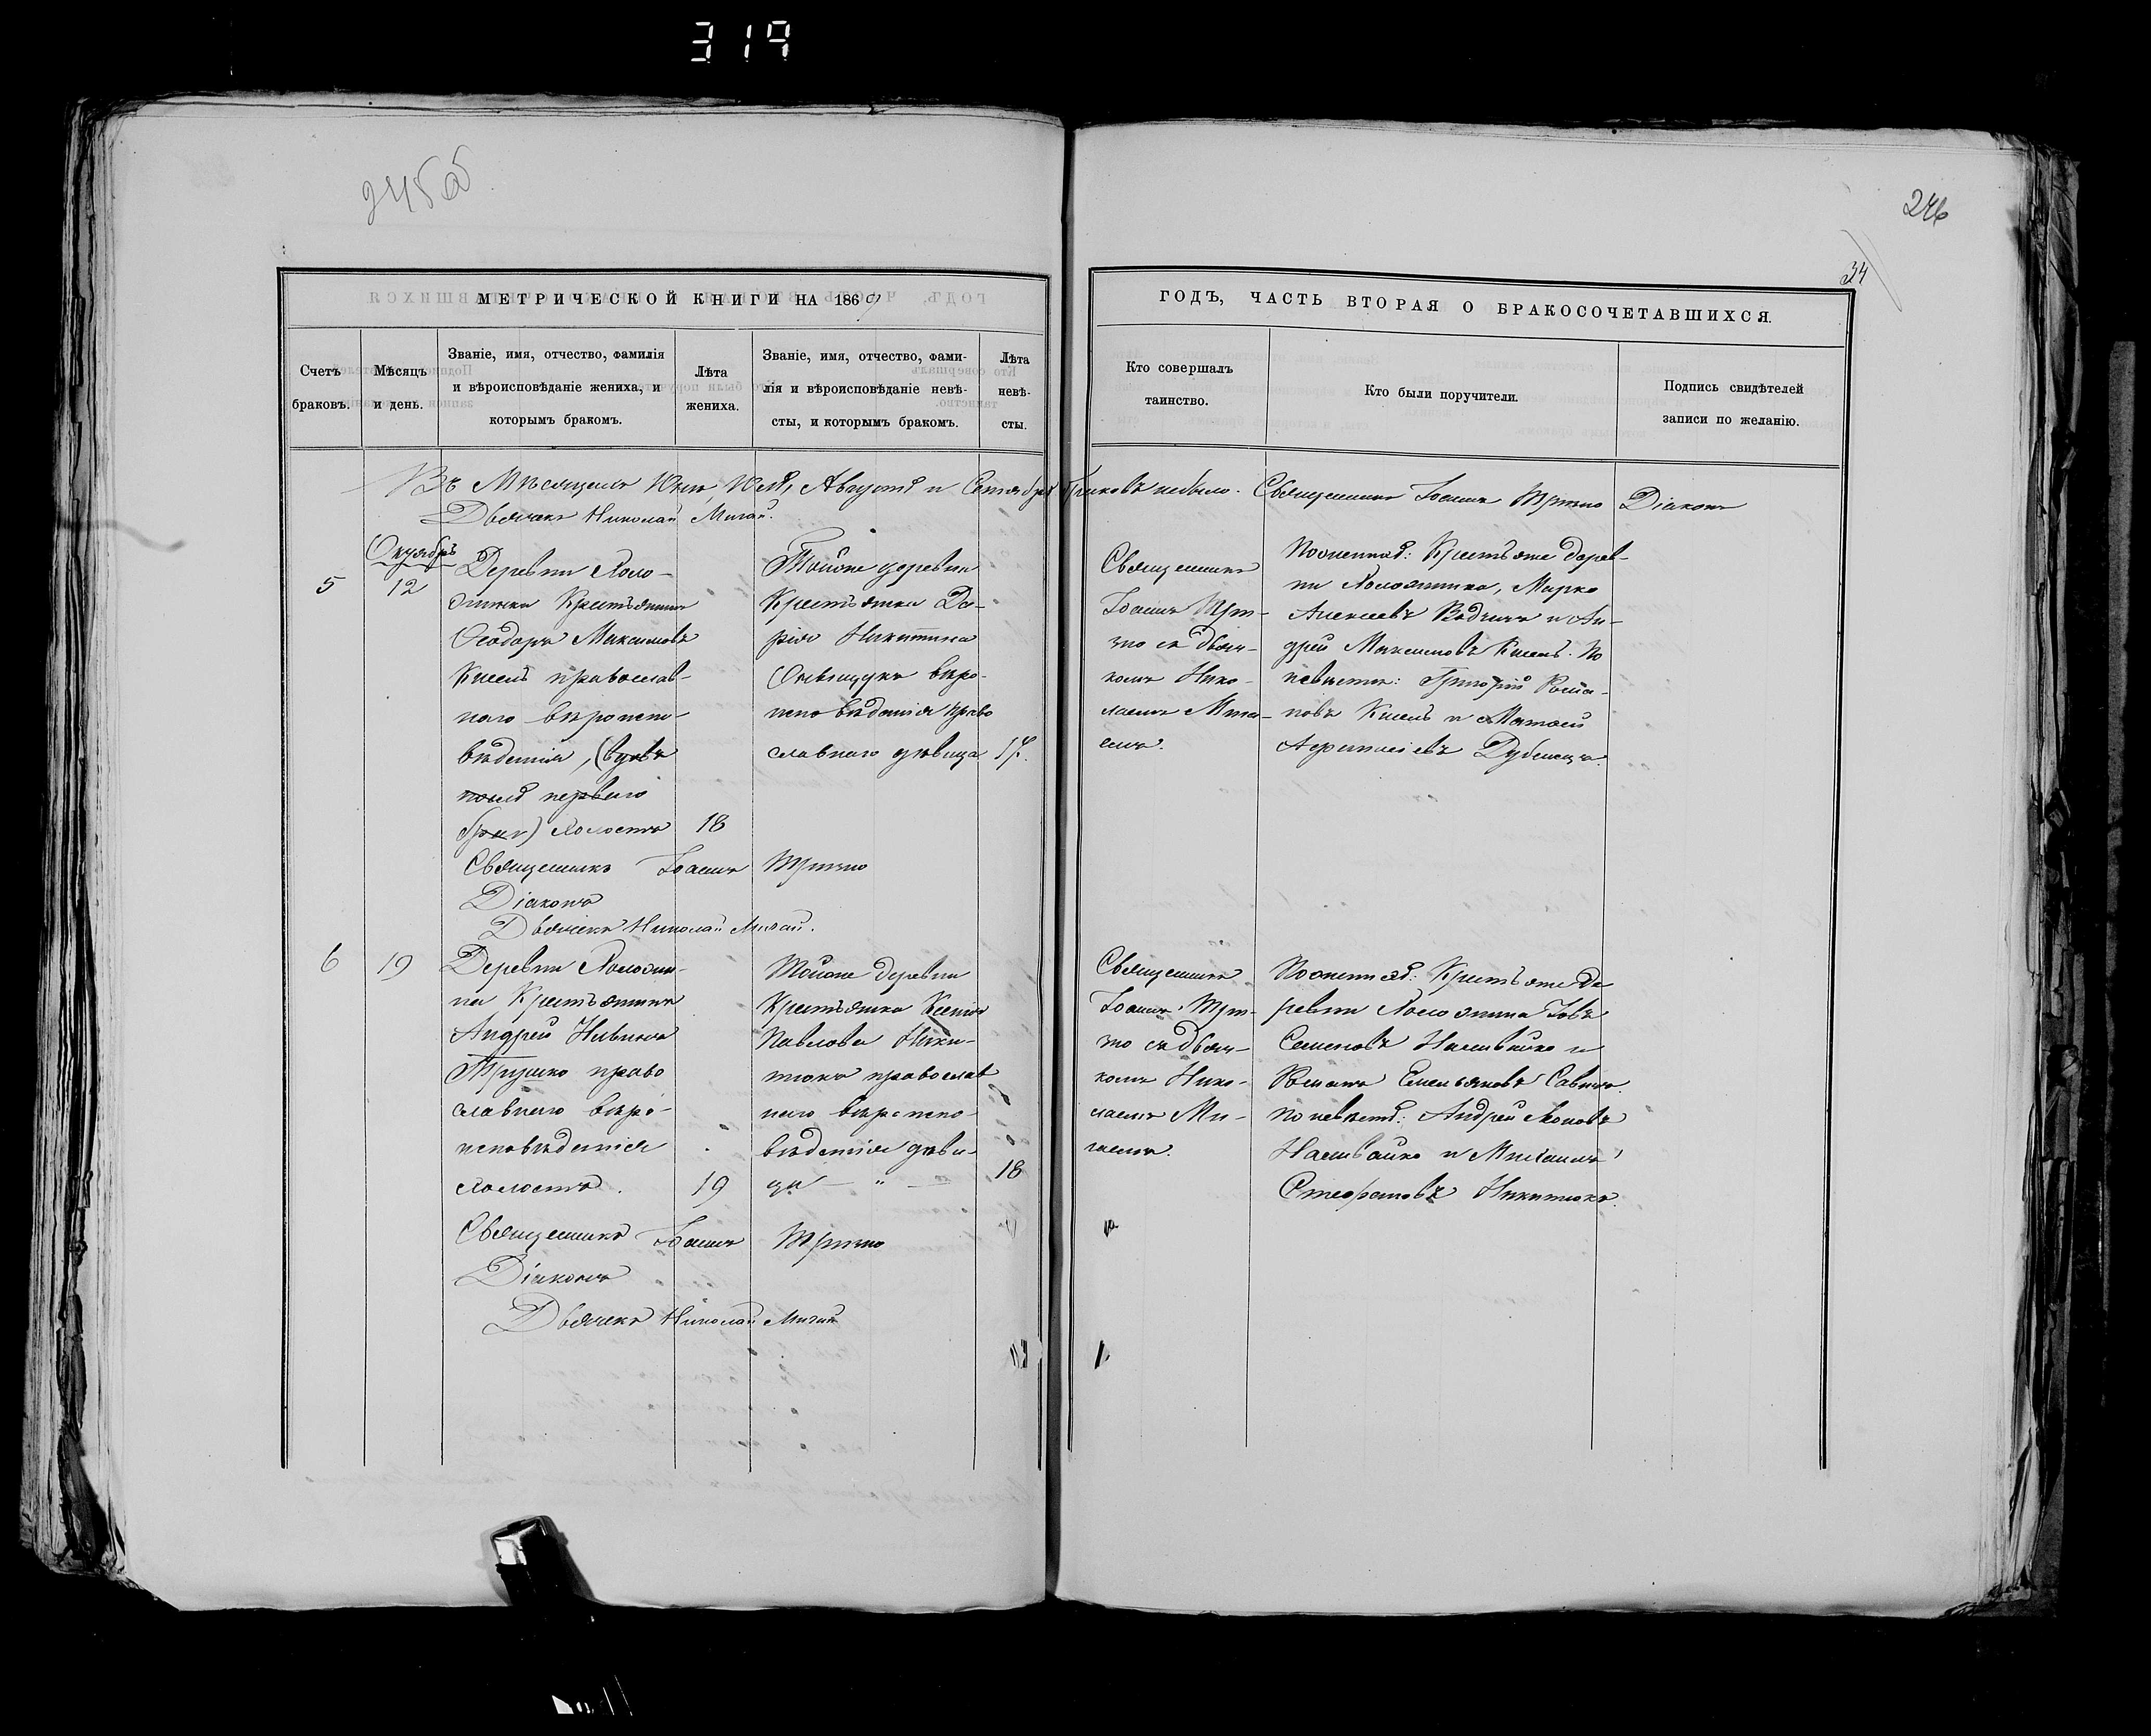 319
245об
246
34
МЕТРИЧЕСКОЙ КНИГИ НА 1869
ГОДЪ, ЧАСТЬ ВТОРАЯ О БРАКОСОЧЕТАВШИХСЯ.
Счетъ
браковъ.
Мѣсяцъ
и день.
Званіе, имя, отчество, фамилія
и вѣроисповѣданіе жениха, и
которымъ бракомъ.
Лѣта
жениха.
Званіе, имя, отчество, фами-
лія и вѣроисповѣданіе невѣ-
сты, и которымъ бракомъ.
Лѣта
невѣ-
сты.
Кто совершалъ
таинство.
Кто были поручители.
Подпись свидѣтелей
записи по желанію.
Въ Мѣсяцахъ Августѣ и Сентябрѣ браковъ небыло. Священникъ Іоаннъ Діаконъ
Дьячекъ Николай Мигай.
Октябрь
5
12
Деревни Холо-
Крестьянинъ
Ѳеодоръ Максимовъ
Кисель православ-
наго вѣроиспо-
вѣданія, (вдовъ
послѣ перваго
брака) холостъ
18
Тойже деревни
Крестьянка Да-
рія Никитина
вѣро-
исповѣданія право
славнаго дѣвица
17.
Священникъ
Іоаннъ
съ дьяч-
комъ Нико-
лаемъ Мига-
емъ.
Поженихѣ: Крестьяне дерев-
ни Холоянина, Марко
Алексѣевъ и Ан-
дрей Максимовъ Кисель. По
невѣстѣ: Григорій Рома-
новъ Кисель и Матѳей
Аѳанасіевъ Дубенецъ.
Священникъ Іоаннъ
Діаконъ
Дьячекъ Николай Мигай.
6
19
Деревни Холоян-
на Крестьянинъ
Андрей
право
славнаго вѣро-
исповѣданія
холостъ.
19
Тойже деревни
Крестьянка Ксенія
Павлова Ники-
тюкъ православ
наго вѣроиспо-
вѣданія дѣви-
ца — " —
18
Священникъ
Іоаннъ
съ дьяч-
комъ Нико-
лаемъ Ми-
гаемъ.
Поженихѣ: Крестьяне де
ревни Холоянина Іовъ
Семеновъ Наливайко и
Романъ Емельяновъ Савичъ.
По невѣстѣ: Андрей
Наливайко и Михаилъ
Стефановъ Никитюкъ.
Священникъ Іоаннъ
Діаконъ
Дьячекъ Николай Мигай